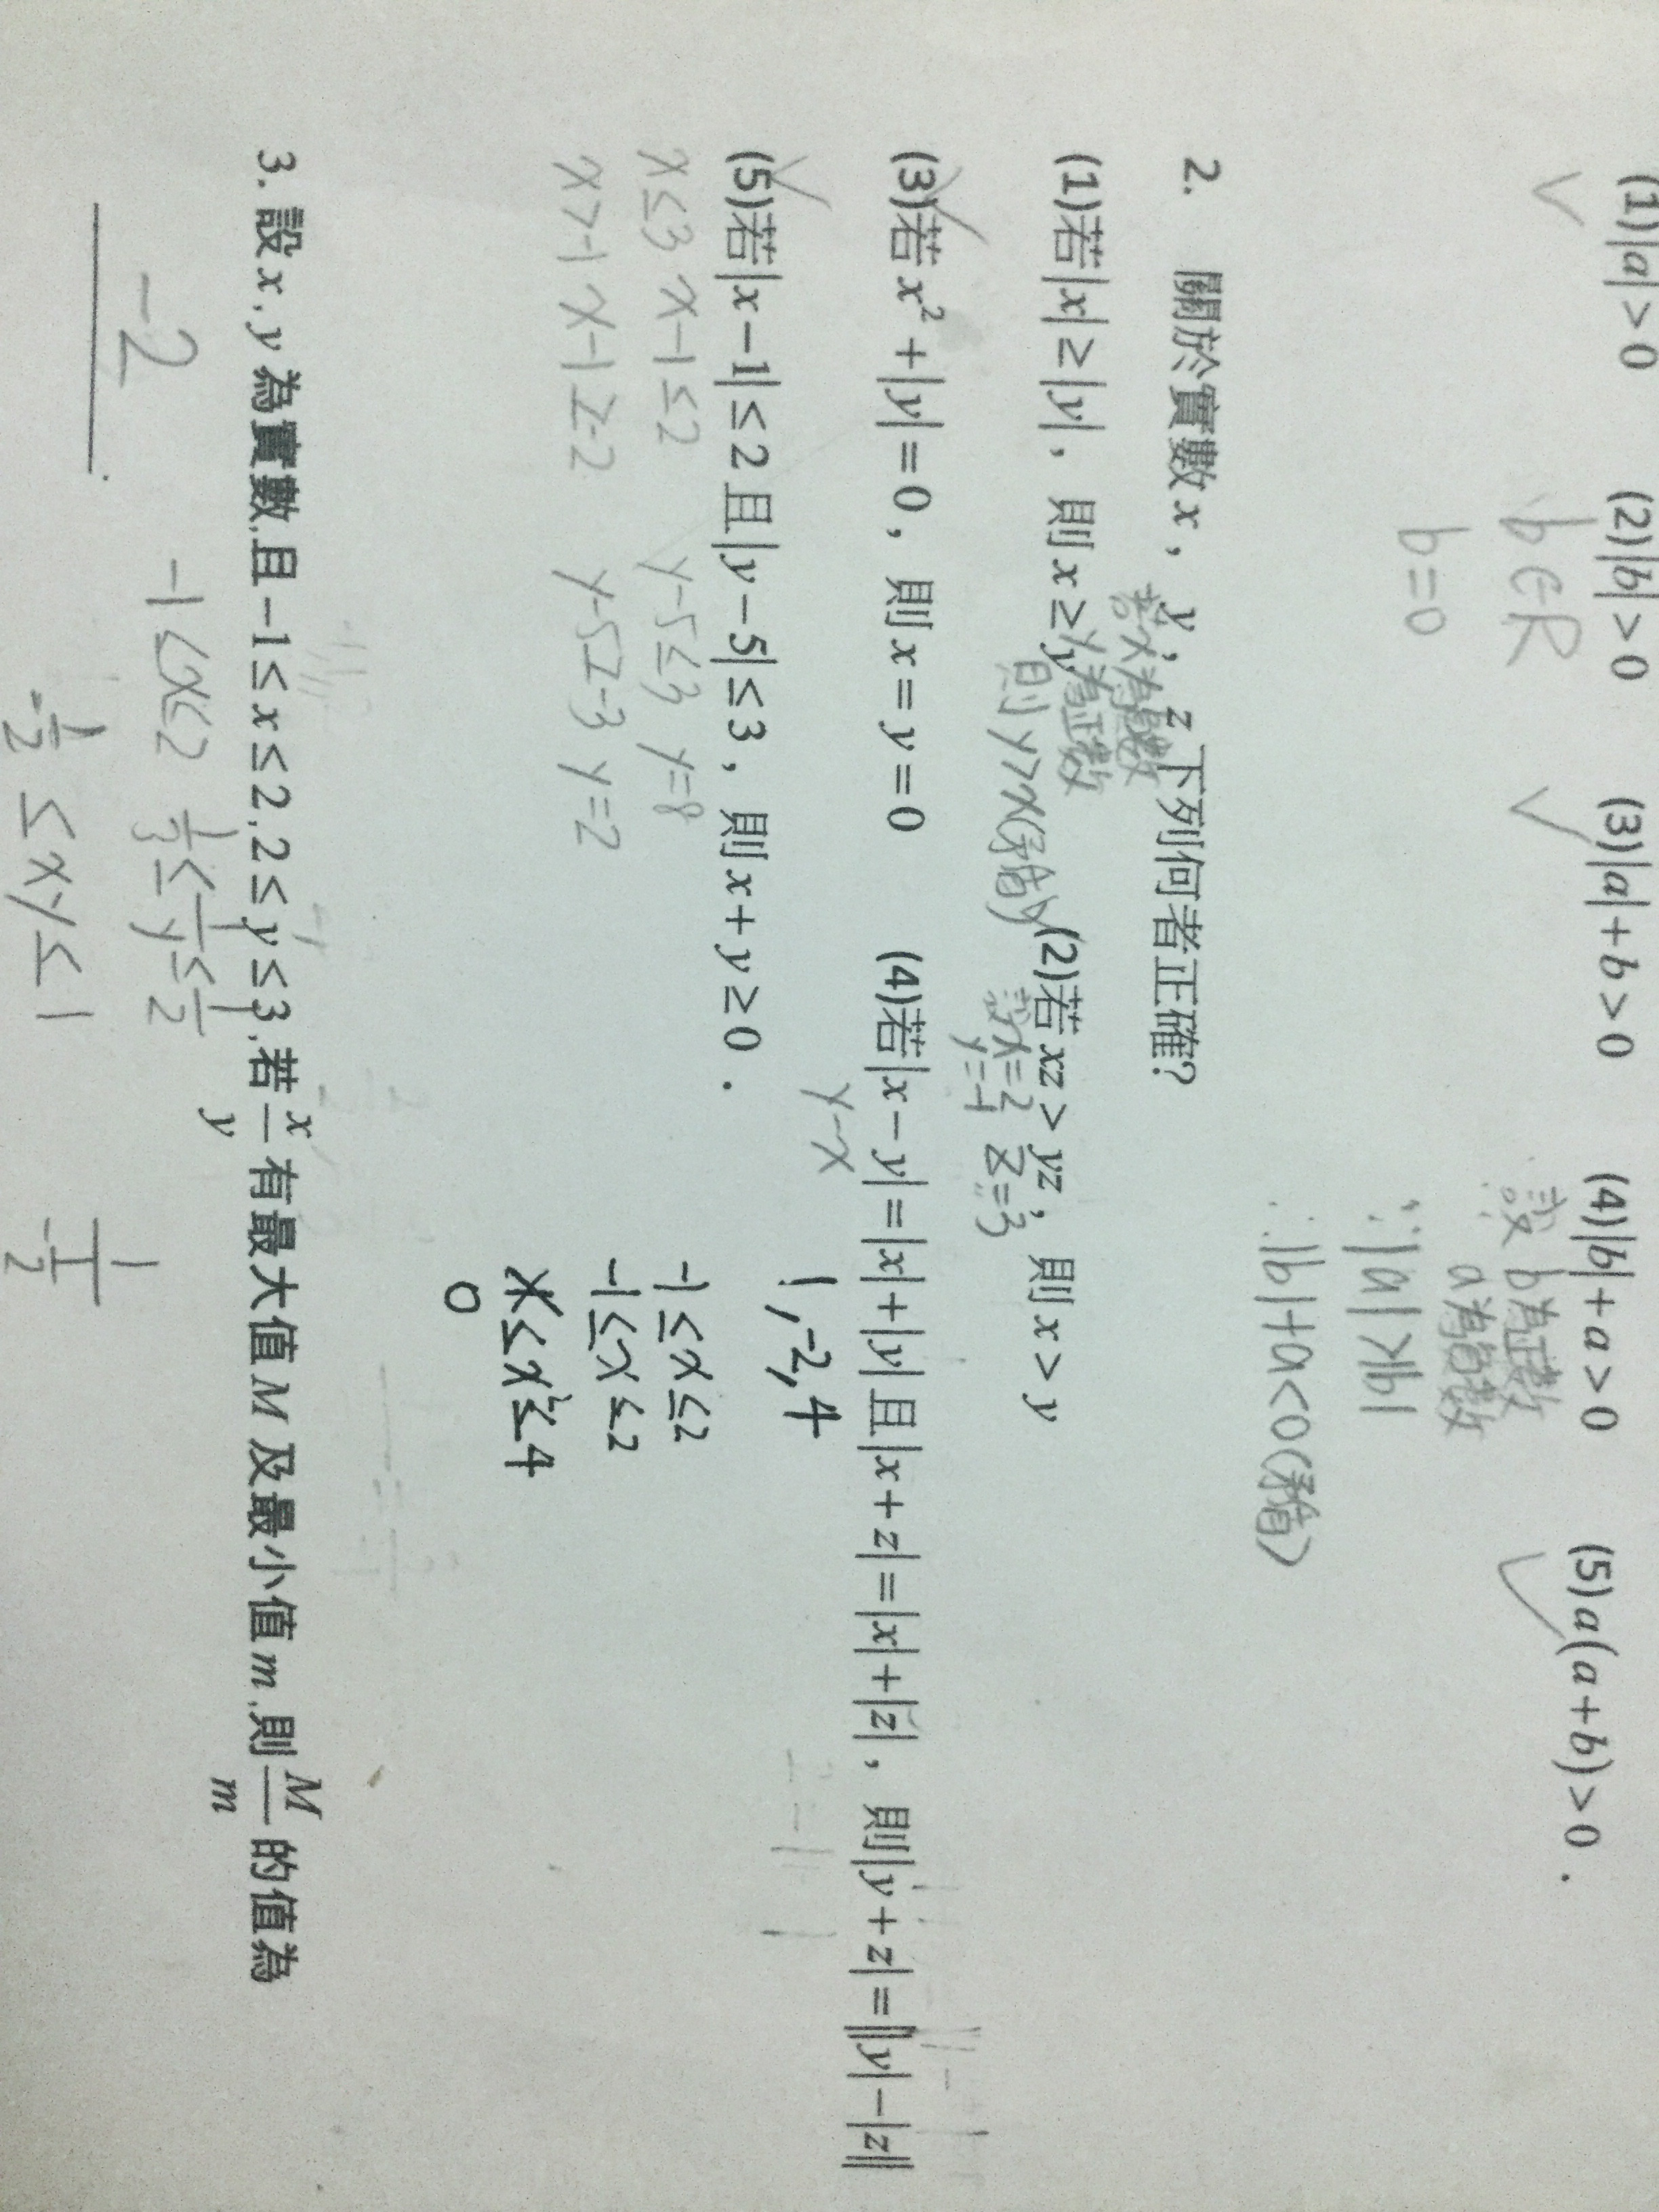 (1)|a|>0 (2)|b|>0 (3)|a|+b>0 (4)|b|+a>0 (5)a(a+b)>0.
✓ b∈R ✓ 設 b為正數 ✓
b=0 a為負數
∵|a|>|b|
∴|b|+a<0(矛盾)
2. 關於實數x，y，z下列何者正確?
若x為負數
y為正數
則y>x(矛盾)
(1)若|x|≥|y|，則x≥y (2)若xz>yz，則x>y
設x=2 z=3
y=-4
✓(3)若x²+|y|=0，則x=y=0 (4)若|x-y|=|x|+|y|且|x+z|=|x|+|z|，則|y+z|=||y|-|z||
y-x
1,-2,4
✓(5)若|x-1|≤2且|y-5|≤3，則x+y≥0.
x≤3 x-1≤2 y-5≤3 y=8
x>-1 x-1≥-2 y-5≥-3 y=2
-1≤x≤2
-1≤x≤2
≤x²≤4
0
3. 設x,y為實數,且-1≤x≤2,2≤y≤3,若x/y有最大值M及最小值m,則M/m的值為
-2.
-1<x<2 1/3≤1/y≤1/2
-1/2≤xy≤1
1/(-1/2)